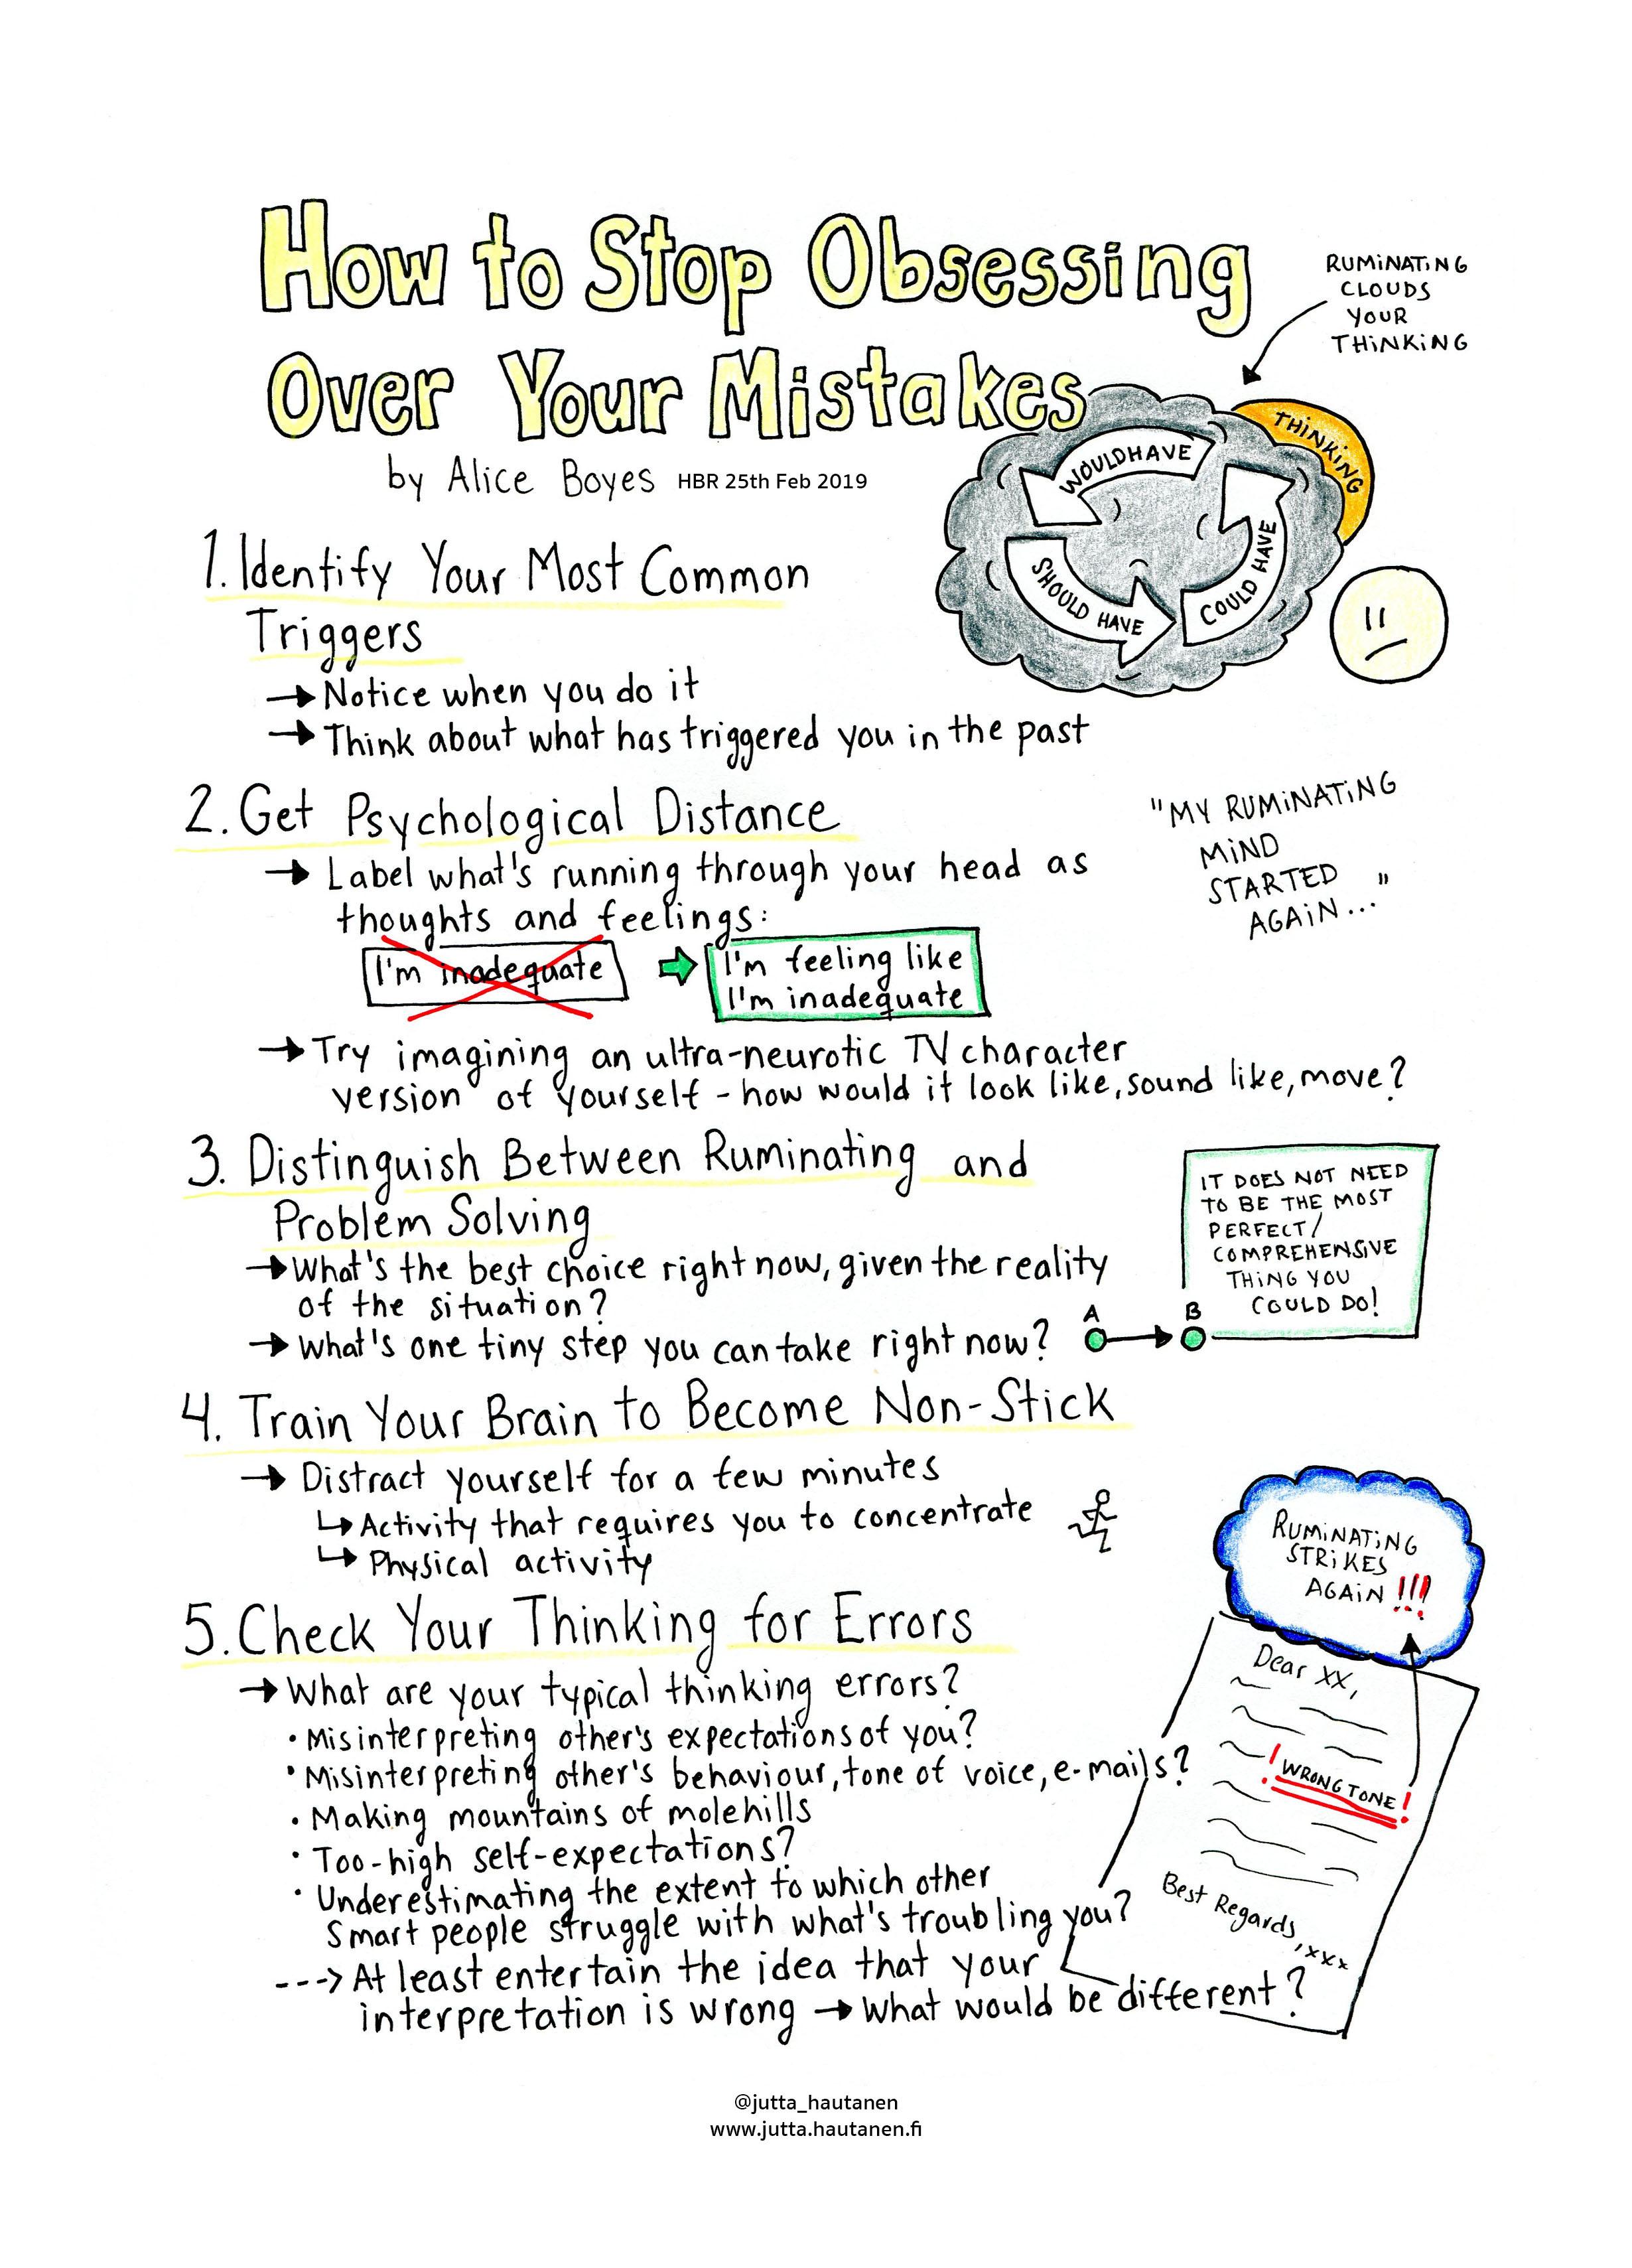 How to Stop Obsessing
Over Your Mistakes
by Alice Boyes HBR 25th Feb 2019
RUMINATING
CLOUDS
YOUR
THINKING
THINKING
WOULD HAVE
COULD HAVE
SHOULD HAVE
1. Identify Your Most Common
Triggers
→ Notice when you do it
→ Think about what has triggered you in the past
2. Get Psychological Distance
→ Label what's running through your head as
thoughts and feelings:
I'm inadequate
I'm feeling like
I'm inadequate
"MY RUMINATING
MIND
STARTED
AGAIN..."
→ Try imagining an ultra-neurotic TV character
version of yourself - how would it look like, sound like, move?
3. Distinguish Between Ruminating and
Problem Solving
→ What's the best choice right now, given the reality
of the situation?
→ What's one tiny step you can take right now?
A
B
IT DOES NOT NEED
TO BE THE MOST
PERFECT/
COMPREHENSIVE
THING YOU
COULD DO!
4. Train Your Brain to Become Non-Stick
→ Distract yourself for a few minutes
↳ Activity that requires you to concentrate
↳ Physical activity
5. Check Your Thinking for Errors
→ What are your typical thinking errors?
• Misinterpreting other's expectations of you?
• Misinterpreting other's behaviour, tone of voice, e-mails?
• Making mountains of molehills
• Too-high self-expectations?
• Underestimating the extent to which other
smart people struggle with what's troubling you?
---> At least entertain the idea that your
interpretation is wrong → What would be different?
RUMINATING
STRIKES
AGAIN !!!
Dear XX,
! WRONG TONE !
Best Regards,
, xxx
@jutta_hautanen
www.jutta.hautanen.fi